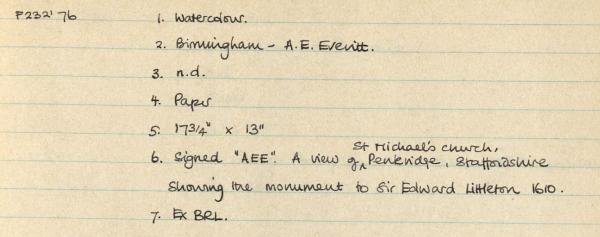 F232'76 1. Watercolour.
2. Birmingham - A.E. Everitt.
3. n.d.
4. Paper
5. 17 3/4" x 13"
6. Signed "AEE". A view of St Michael's church, Penkridge, Staffordshire
showing the monument to Sir Edward Littleton 1610.
7. Ex BRL.